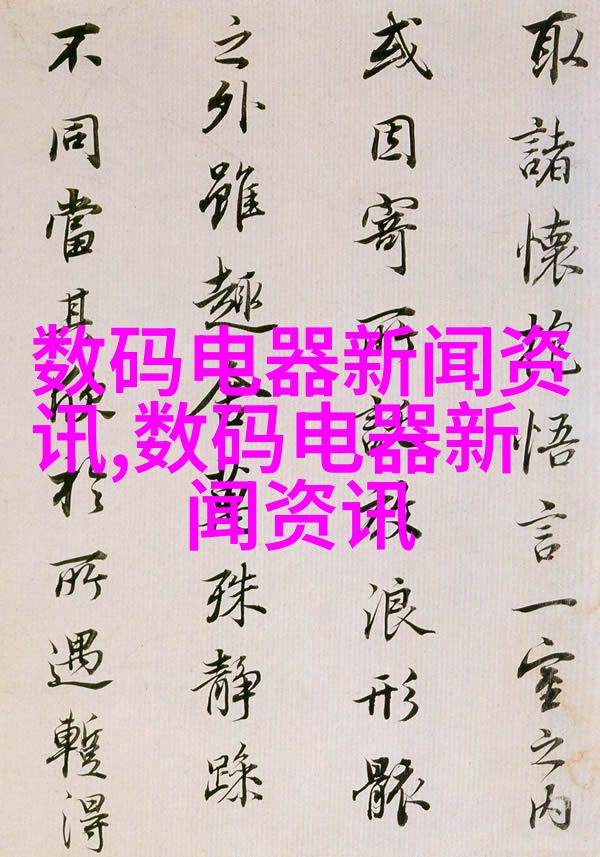 取諸懷抱悟言一室之内
或因寄所託放浪形骸
之外雖趣舍萬殊靜躁
不同當其欣於所遇蹔得
数码电器新闻资
讯,数码电器新
闻资讯